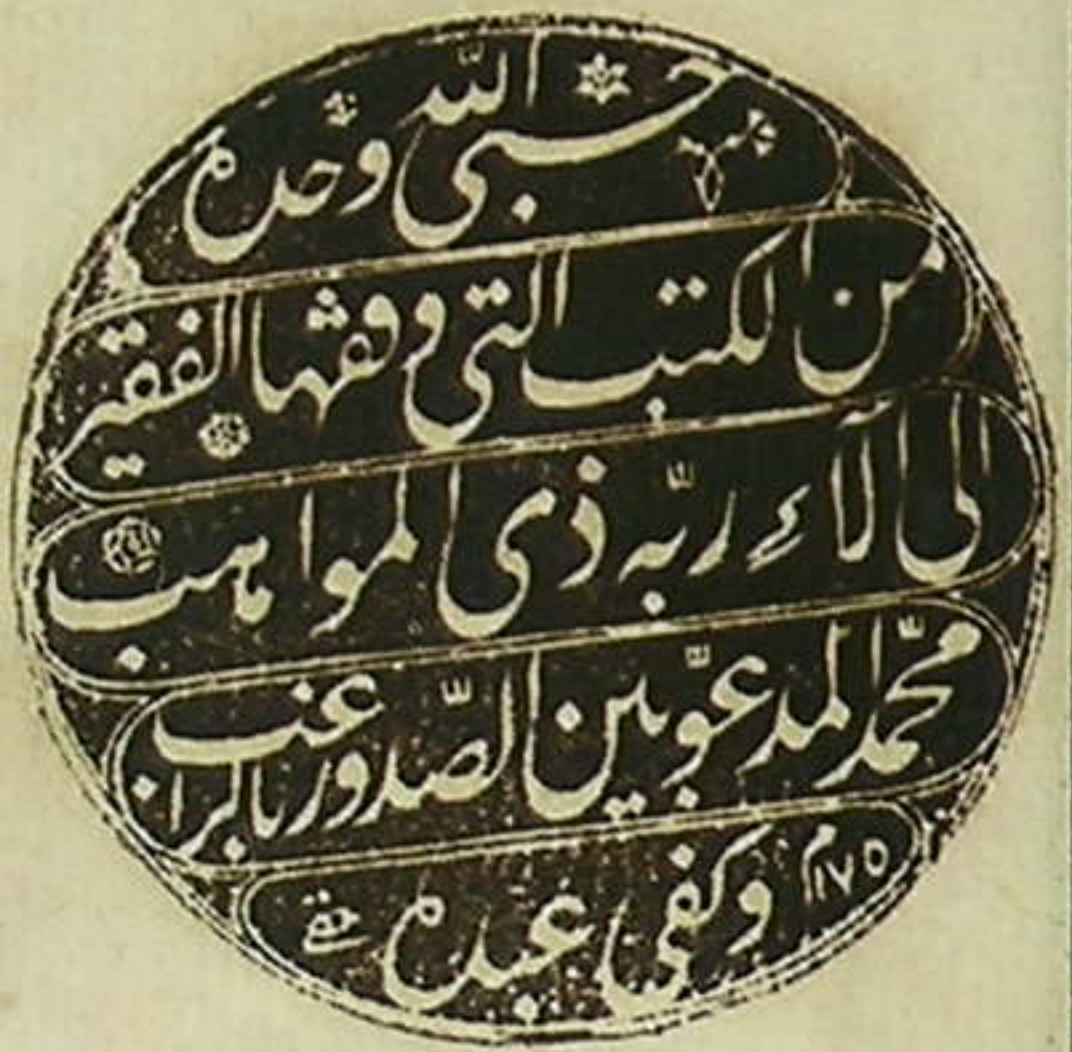 حسبی الله وحده
من الکتب التی وقفها الفقیر
الی آلاء ربّه ذی المواهب
محمّد المدعوّ بین الصّدور بالراغب
وکفی عبده ١١٧٥